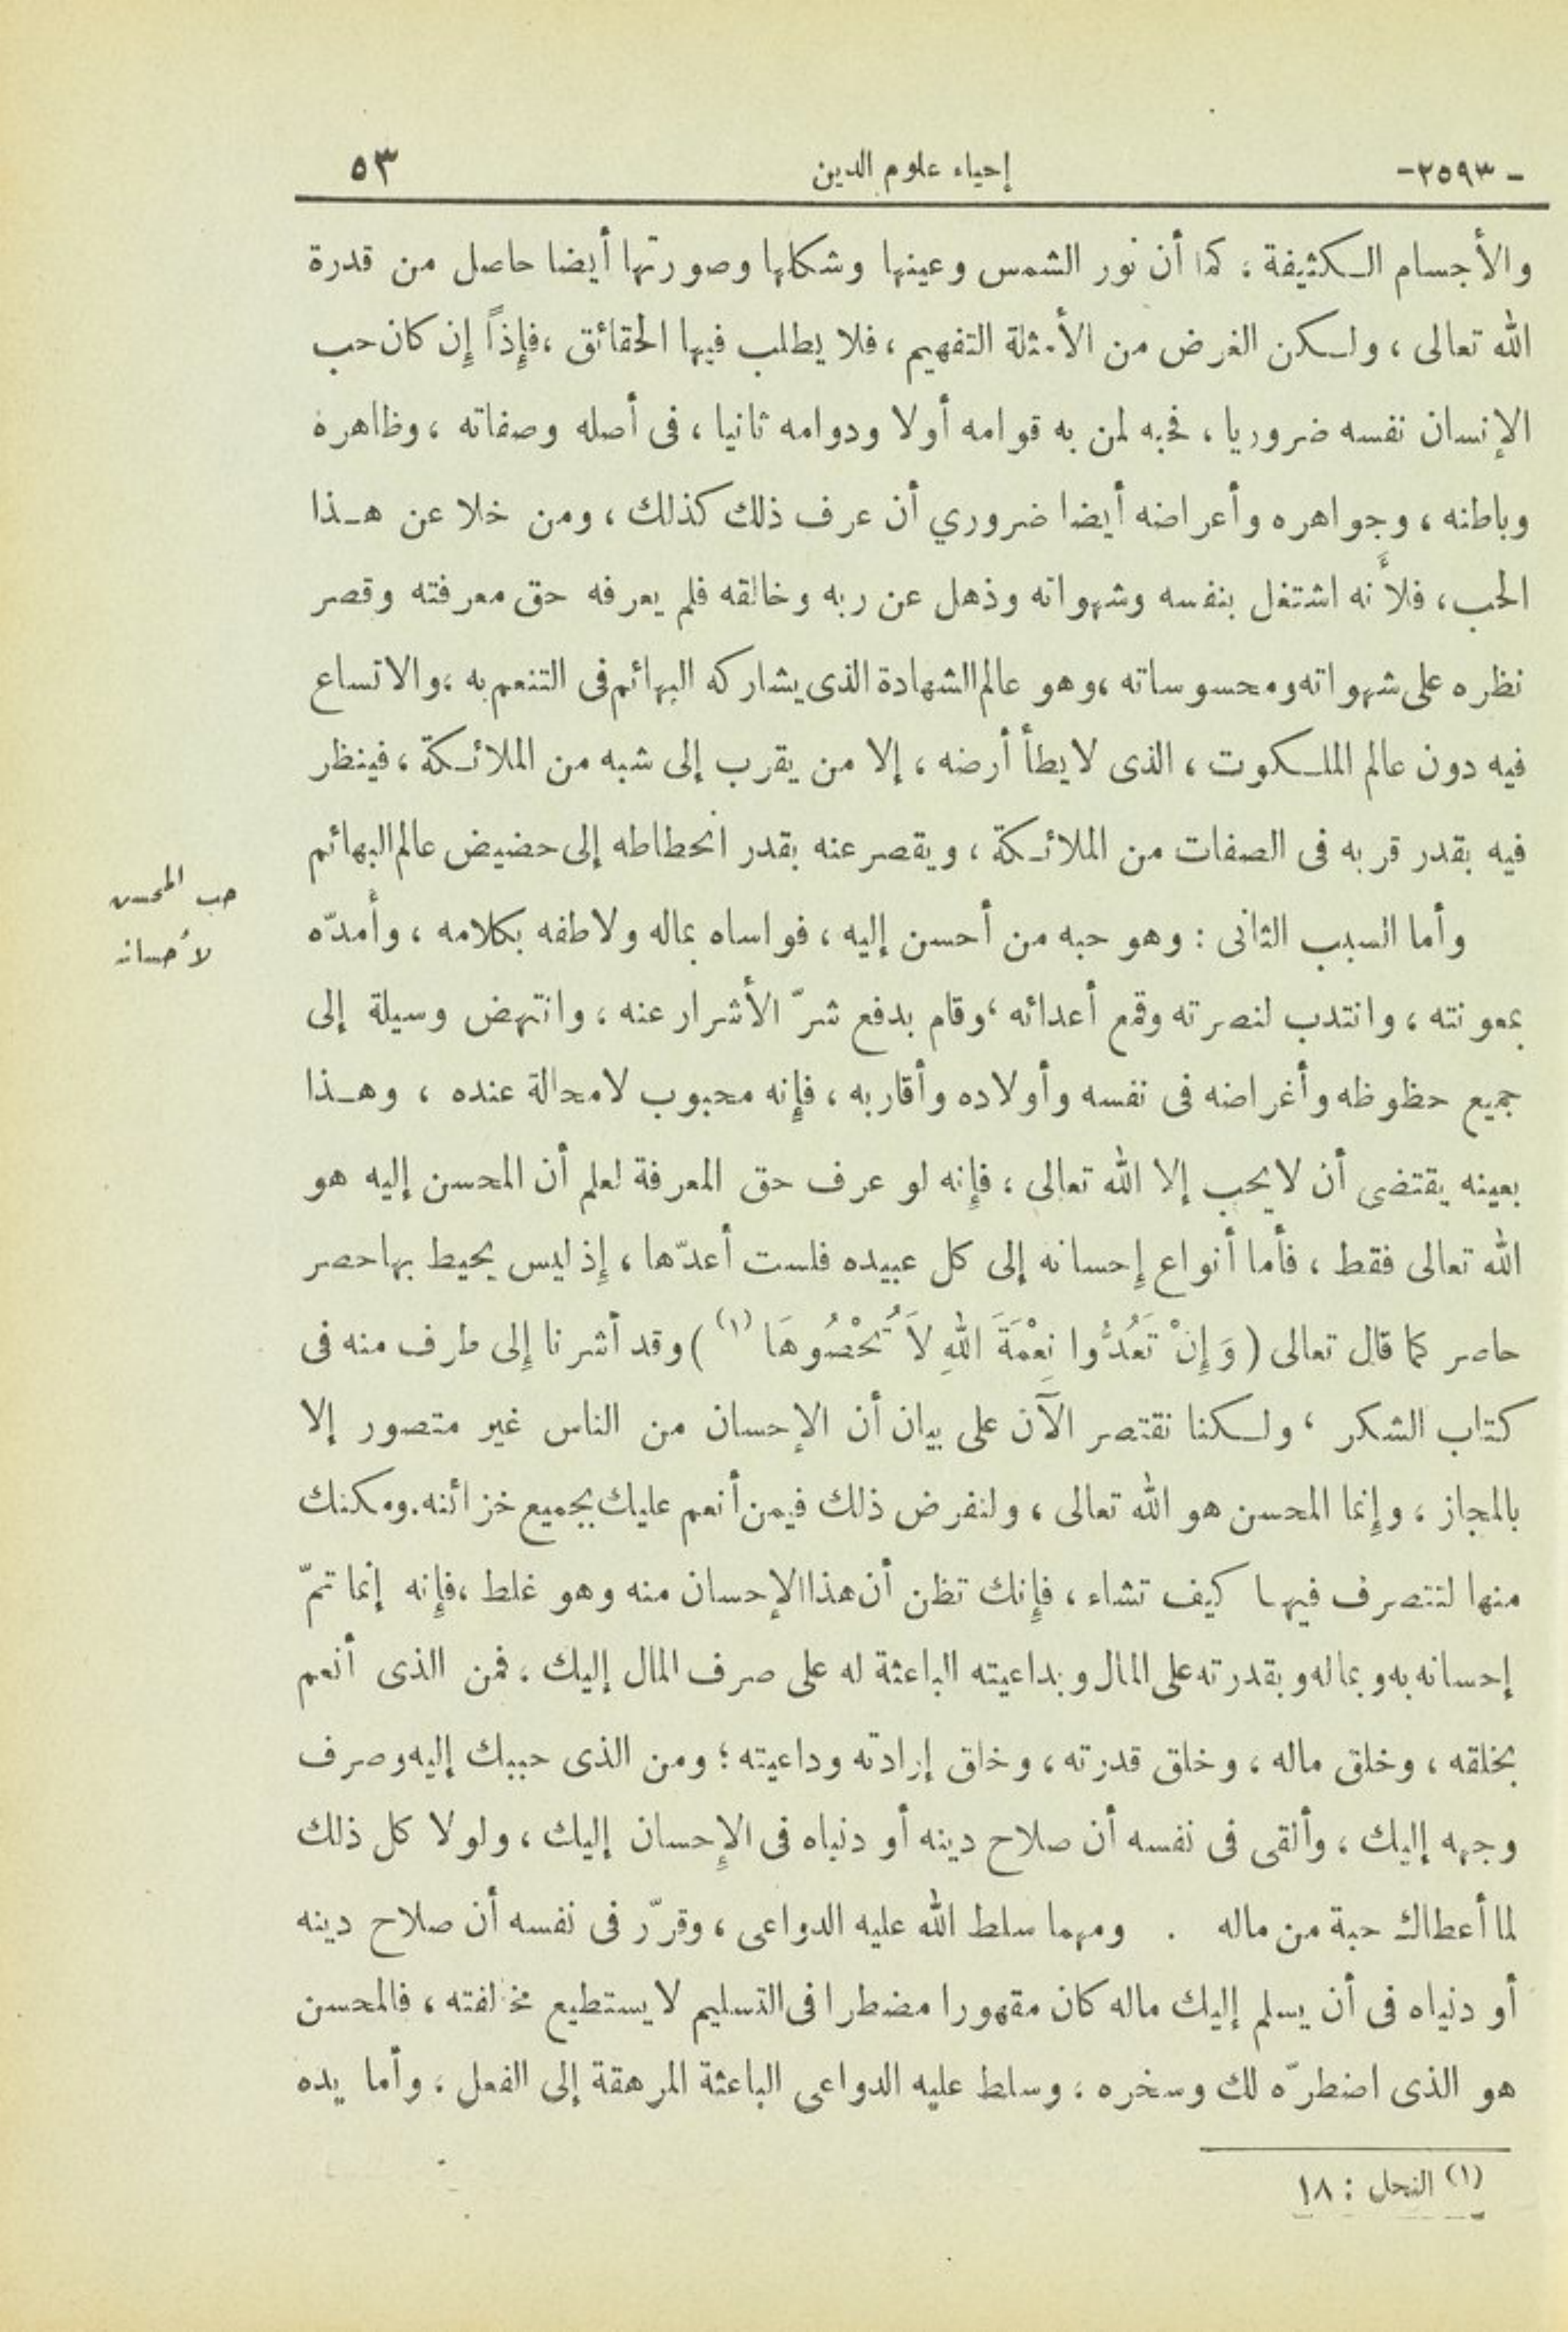 -٢٥٩٣- إحياء علوم الدين ٥٣
والأجسام الكثيفة ، كما أن نور الشمس وعينها وشكلها وصورتها أيضا حاصل من قدرة
الله تعالى ، ولكن الغرض من الأمثلة التفهيم ، فلا يطلب فيها الحقائق ، فإذاً إن كان حب
الإنسان نفسه ضروريا ، فحبه لمن به قوامه أولا ودوامه ثانيا ، فى أصله وصفاته ، وظاهره
وباطنه ، وجواهره وأعراضه أيضا ضروري أن عرف ذلك كذلك ، ومن خلا عن هـذا
الحب ، فلأنه اشتغل بنفسه وشهواته وذهل عن ربه وخالقه فلم يعرفه حق معرفته وقصر
نظره على شهواته ومحسوساته ، وهو عالم الشهادة الذى يشاركه البهائم فى التنعم به ، والاتساع
فيه دون عالم الملكوت ، الذى لايطأ أرضه ، إلا من يقرب إلى شبه من الملائكة ، فينظر
فيه بقدر قربه فى الصفات من الملائكة ، ويقصر عنه بقدر انحطاطه إلى حضيض عالم البهائم
حب المحسن
لأحسانه
وأما السبب الثانى : وهو حبه من أحسن إليه ، فواساه بماله ولاطفه بكلامه ، وأمدّه
بمعونته ، وانتدب لنصرته وقمع أعدائه ، وقام بدفع شرّ الأشرار عنه ، وانتهض وسيلة إلى
جميع حظوظه وأغراضه فى نفسه وأولاده وأقاربه ، فإنه محبوب لامحالة عنده ، وهـذا
بعينه يقتضى أن لايحب إلا الله تعالى ، فإنه لو عرف حق المعرفة لعلم أن المحسن إليه هو
الله تعالى فقط ، فأما أنواع إحسانه إلى كل عبيده فلست أعدّها ، إذ ليس يحيط بها حصر
حاصر كما قال تعالى ( وَإِنْ تَعُدُّوا نِعْمَةَ اللهِ لاَ تُحْصُوهَا (١) ) وقد أشرنا إلى طرف منه فى
كتاب الشكر ، ولكنا نقتصر الآن على بيان أن الإحسان من الناس غير متصور إلا
بالمجاز ، وإنما المحسن هو الله تعالى ، ولنفرض ذلك فيمن أنعم عليك بجميع خزائنه. ومكنك
منها لتتصرف فيها كيف تشاء ، فإنك تظن أن هذا الإحسان منه وهو غلط ، فإنه إنما تمّ
إحسانه به وبماله وبقدرته على المال وبداعيته الباعثة له على صرف المال إليك ، فمن الذى أنعم
بخلقه ، وخلق ماله ، وخلق قدرته ، وخلق إرادته وداعيته ؛ ومن الذى حببك إليه وصرف
وجهه إليك ، وألقى فى نفسه أن صلاح دينه أو دنياه فى الإحسان إليك ، ولولا كل ذلك
لما أعطاك حبة من ماله . ومهما سلط الله عليه الدواعى ، وقرّر فى نفسه أن صلاح دينه
أو دنياه فى أن يسلم إليك ماله كان مقهورا مضطرا فى التسليم لا يستطيع مخالفته ، فالمحسن
هو الذى اضطرّه لك وسخره ، وسلط عليه الدواعى الباعثة المرهقة إلى الفعل ، وأما يده
(١) النحل : ١٨